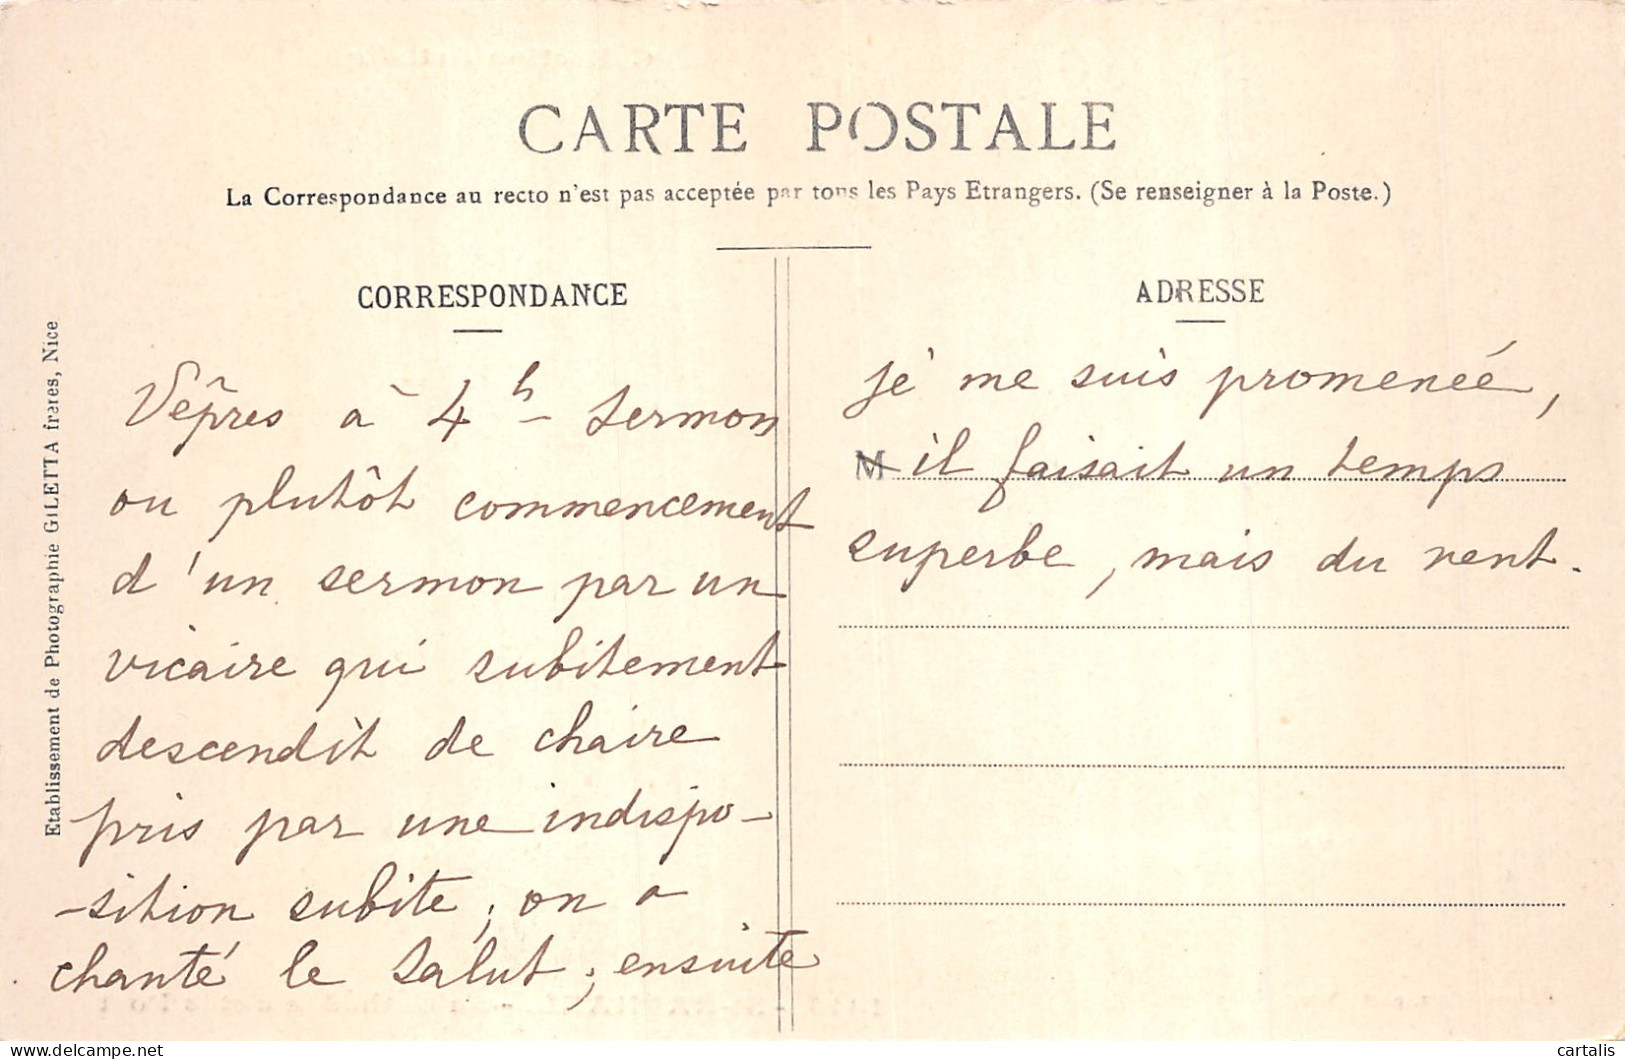 CARTE POSTALE
La Correspondance au recto n'est pas acceptée par tous les Pays Etrangers. (Se renseigner à la Poste.)
CORRESPONDANCE
Vêpres à 4h - sermon
ou plutôt commencement
d'un sermon par un
vicaire qui subitement
descendit de chaire
pris par une indispo-
-sition subite, on a
chanté le Salut ; ensuite
ADRESSE
je me suis promenée,
M il faisait un temps
superbe, mais du vent.
Etablissement de Photographie GILETTA frères, Nice
delcampe.net
cartalis